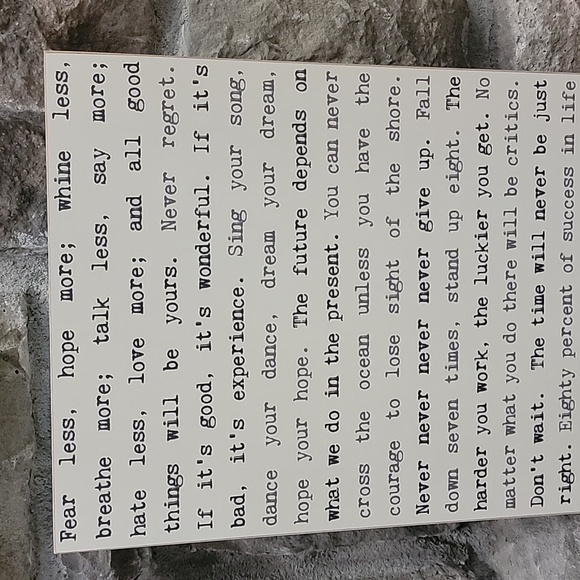 Fear less, hope more; whine less,
breathe more; talk less, say more;
hate less, love more; and all good
things will be yours. Never regret.
If it's good, it's wonderful. If it's
bad, it's experience. Sing your song,
dance your dance, dream your dream,
hope your hope. The future depends on
what we do in the present. You can never
cross the ocean unless you have the
courage to lose sight of the shore.
Never never never never give up. Fall
down seven times, stand up eight. The
harder you work, the luckier you get. No
matter what you do there will be critics.
Don't wait. The time will never be just
right. Eighty percent of success in life